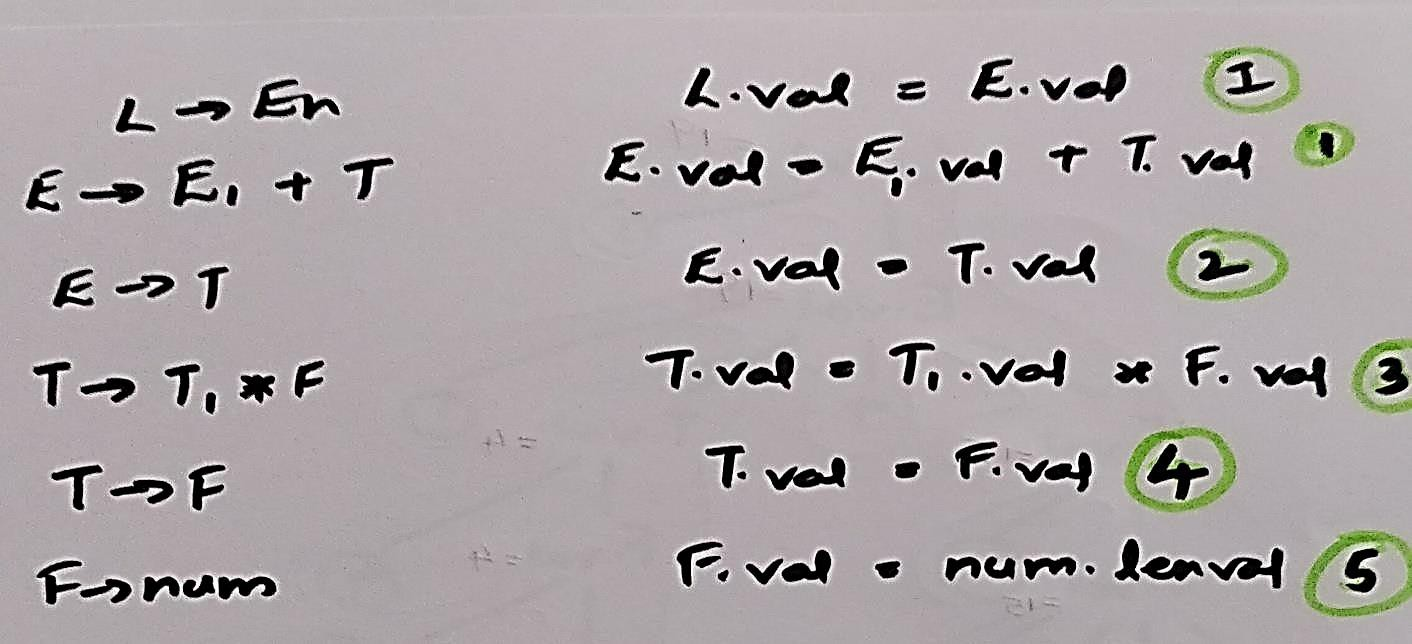 L → En L.val = E.val I
E → E₁ + T E.val = E₁.val + T.val 1
E → T E.val = T.val 2
T → T₁ * F T.val = T₁.val * F.val 3
T → F T.val = F.val 4
F → num F.val = num.lexval 5